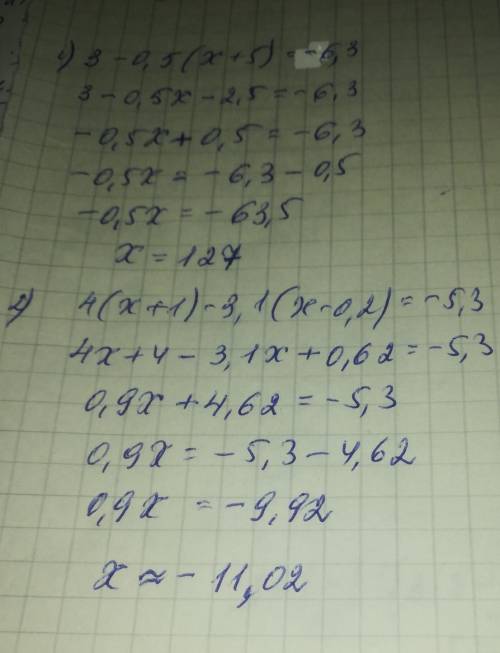 1) 3 - 0,5(x+5) = -6,3
3 - 0,5x - 2,5 = -6,3
-0,5x + 0,5 = -6,3
-0,5x = -6,3 - 0,5
-0,5x = -63,5
x = 127
2) 4(x+1) - 3,1(x-0,2) = -5,3
4x + 4 - 3,1x + 0,62 = -5,3
0,9x + 4,62 = -5,3
0,9x = -5,3 - 4,62
0,9x = -9,92
x ≈ - 11,02